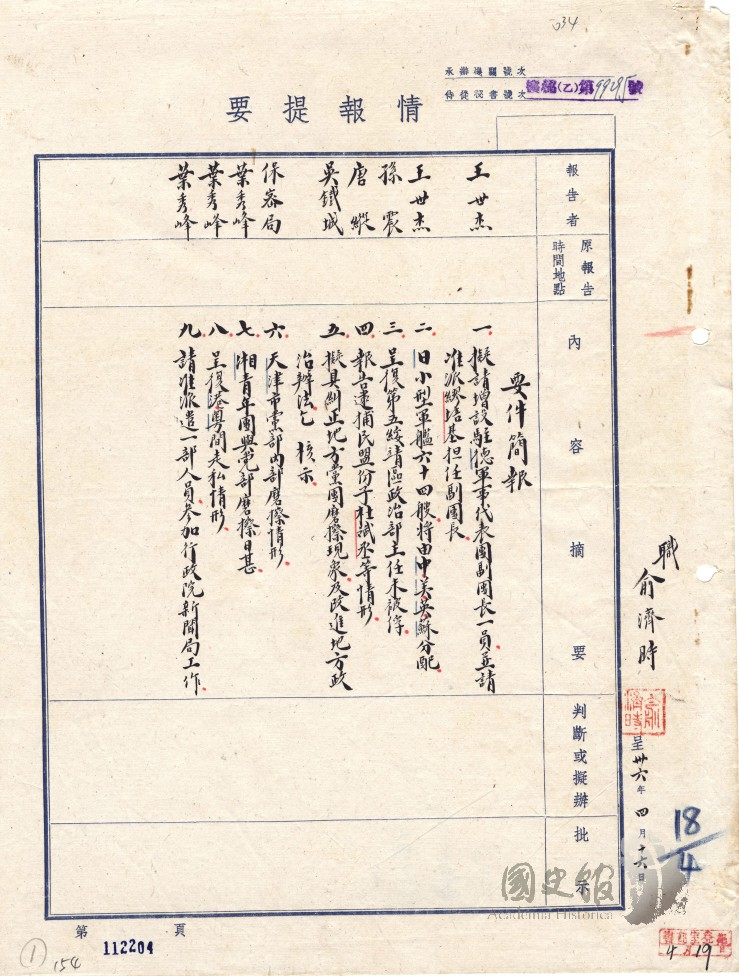 034
承辦機關號次
侍從秘書號次
機秘(乙)第99285號
情報提要
報告者
原報告時間地點
內容摘要
判斷或擬辦
批示
要件簡報
王世杰
一 擬請增設駐德軍事代表團副團長一員並請
准派繆培基担任副團長
王世杰
二 日小型軍艦六十四艘將由中美英蘇分配
孫震
三 呈復第五綏靖區政治部主任未被俘
唐縱
四 報告逮捕民盟份子杜斌丞等情形
吳鐵城
五 擬具糾正地方黨團磨擦現象及改進地方政
治辦法乞 核示
保密局
六 天津市黨部內部磨擦情形
葉秀峰
七 湘青年團與党部磨擦日甚
葉秀峰
八 呈復港粵間走私情形
葉秀峰
九 請准派遣一部人員參加行政院新聞局工作
職 俞濟時
呈 卅六年 四月十六日
18/4
國史館
Academia Historica
4 19
第 112204 頁
1
154